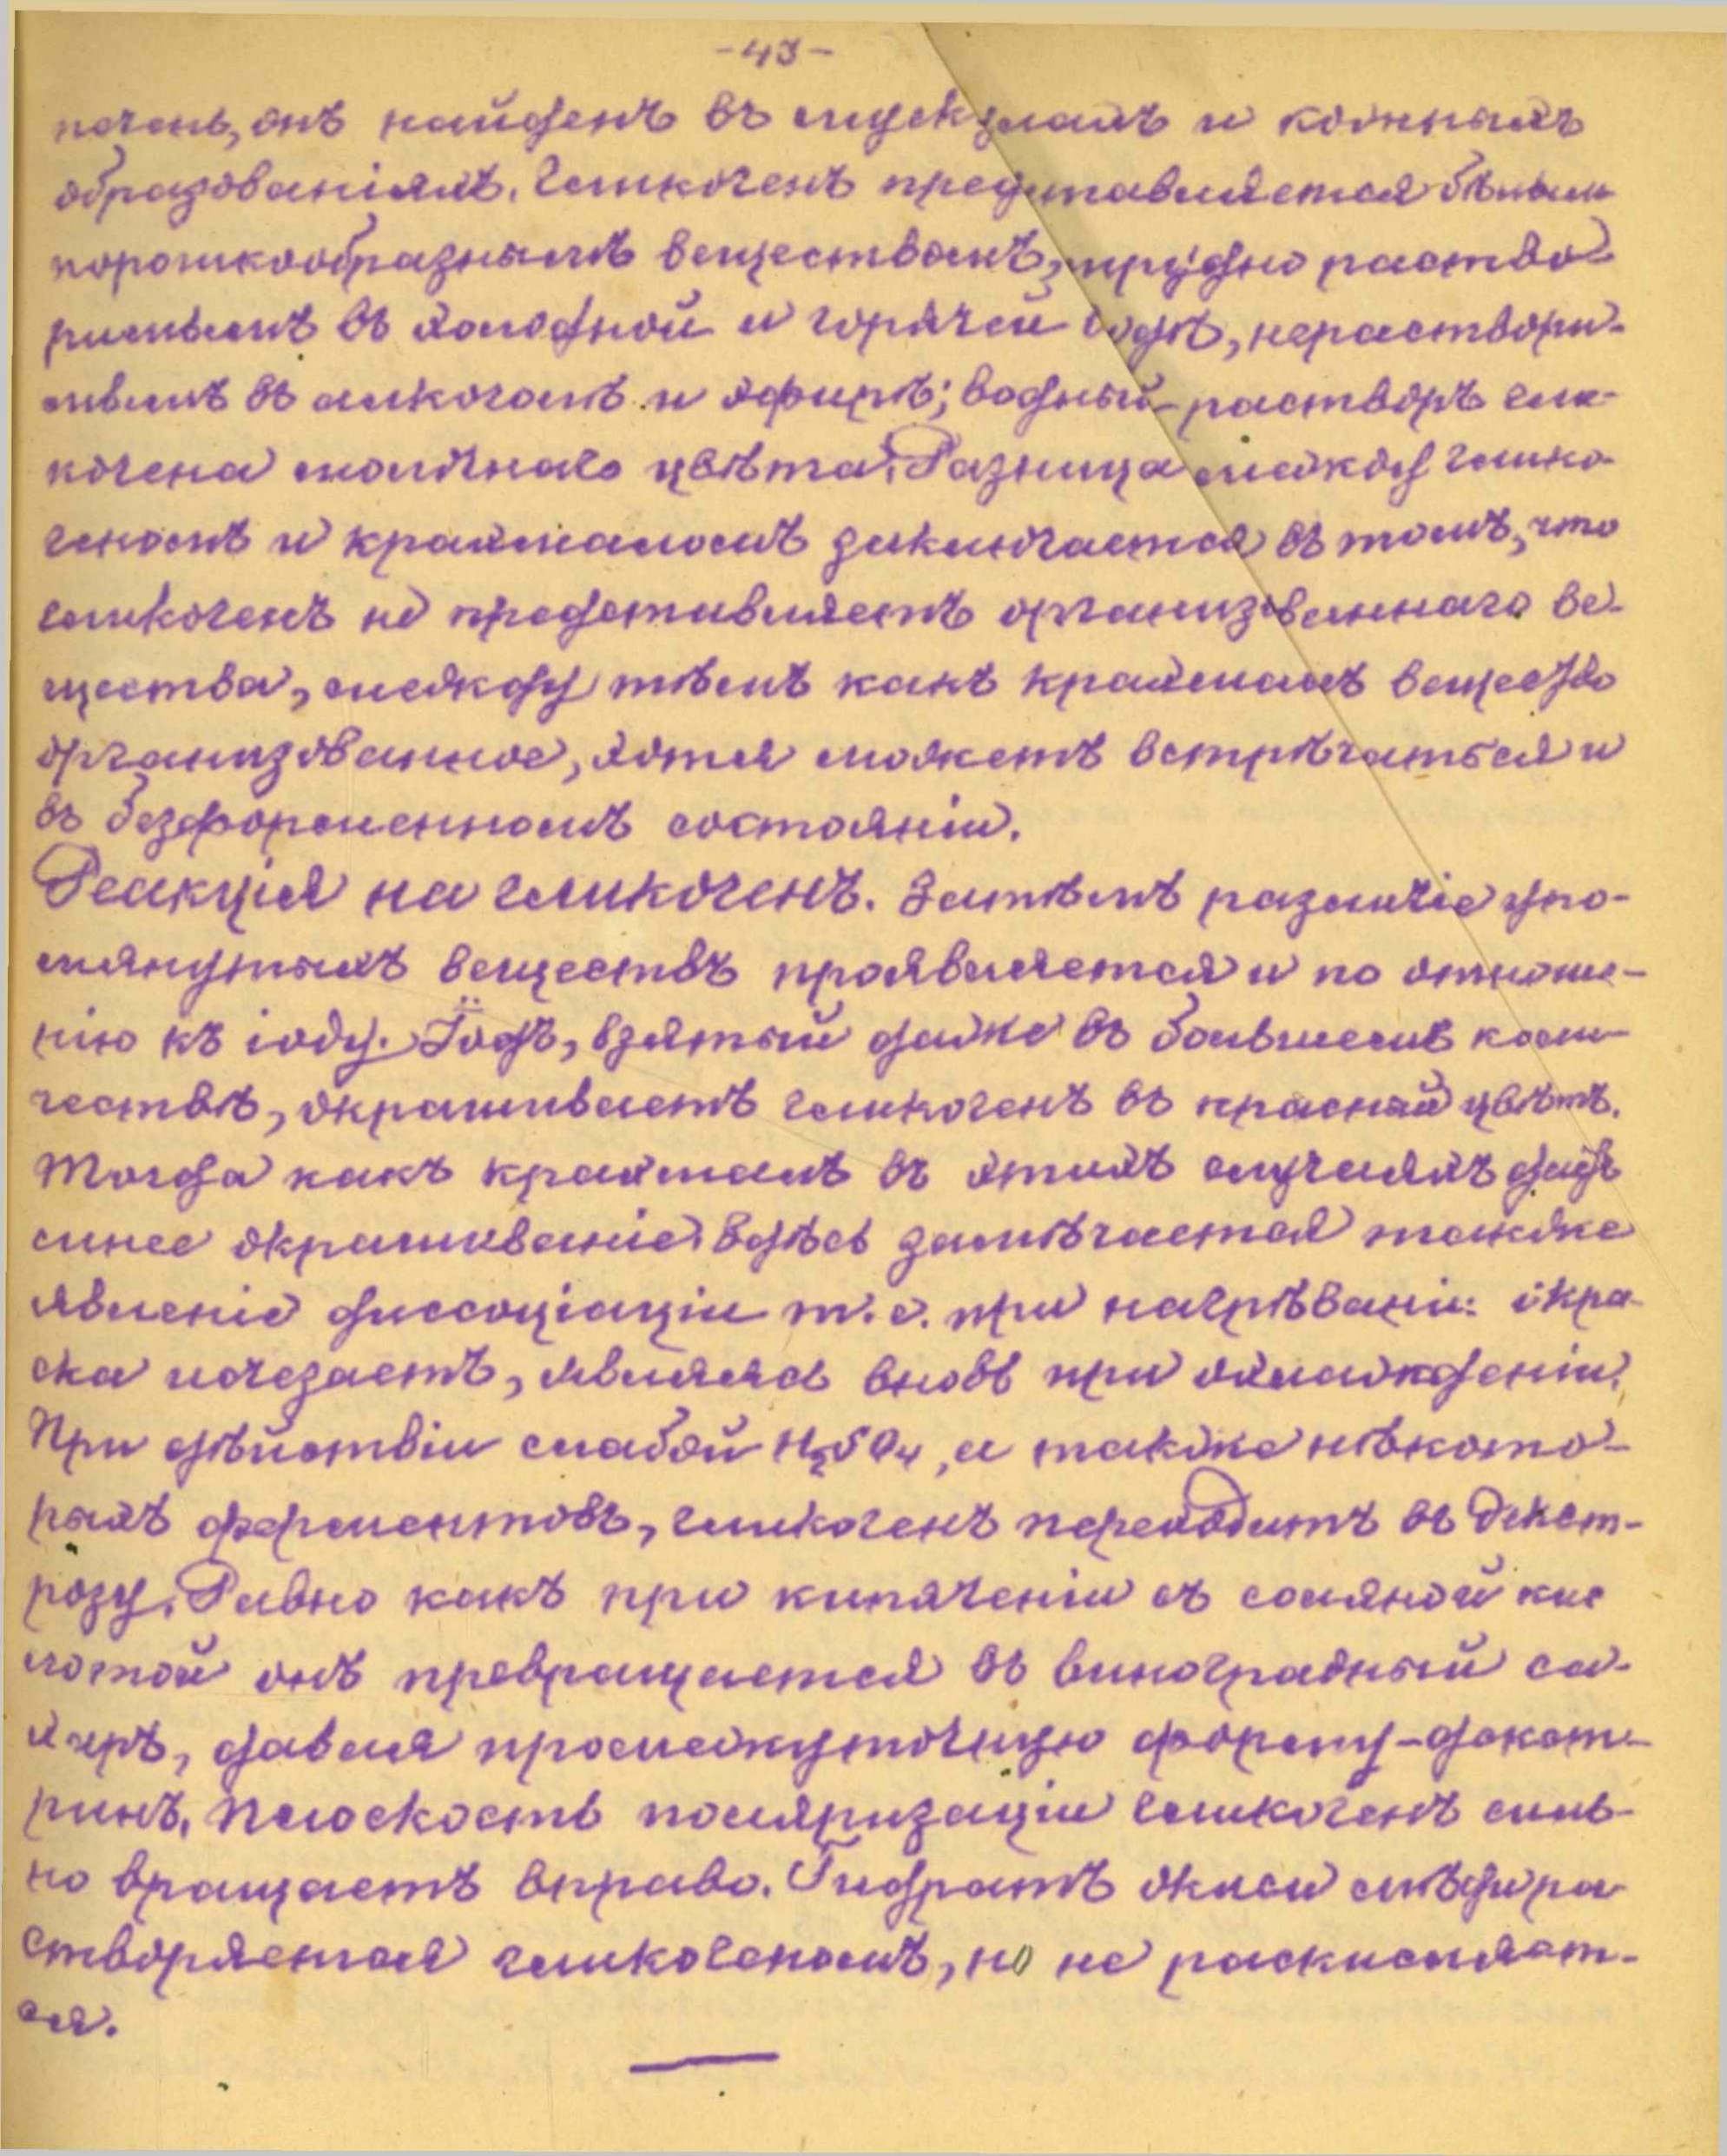 -43-
печень, онъ найденъ въ мускулахъ и кожныхъ
образованіяхъ. Гликогенъ представляется бѣлым
порошкообразнымъ веществомъ, трудно раство-
римымъ въ холодной и горячей водѣ, нераствори-
мымъ въ алкоголѣ и эфирѣ; водный раствѳръ гли-
когена молочнаго цвѣта. Разница между глико-
геномъ и крахмаломъ заключается въ томъ, что
гликогенъ не представляетъ организованнаго ве-
щества, между тѣмъ какъ крахмалъ вещество
организованное, хотя можетъ встрѣчаться и
въ безформенномъ состояніи.
Реакція на гликогенъ. Затѣмъ различіе упо-
мянутыхъ веществъ проявляется и по отноше-
нію къ іоду. Іодъ, взятый даже въ большемъ коли-
чествѣ, окрашиваетъ гликогенъ въ красный цвѣтъ.
Тогда какъ крахмалъ въ этихъ случаяхъ даетъ
синее окрашиваніе. Здѣсь замѣчается также
явленіе диссоціаціи т. е. при нагрѣваніи окра-
ска изчезаетъ, являяся вновь при охлажденіи.
При дѣйствіи слабой H₂SO₄, а также нѣкото-
рыхъ ферментовъ, гликогенъ переходитъ въ декст-
розу. Равно какъ при кипяченіи съ соляной кис
лотой онъ превращается въ виноградный са-
харъ, давая промежуточную форму-декст-
ринъ. Плоскость поляризаціи гликогенъ силь-
но вращаетъ вправо. Гидратъ окиси мѣди ра-
створяется гликогеномъ, но не раскисляет-
ся.